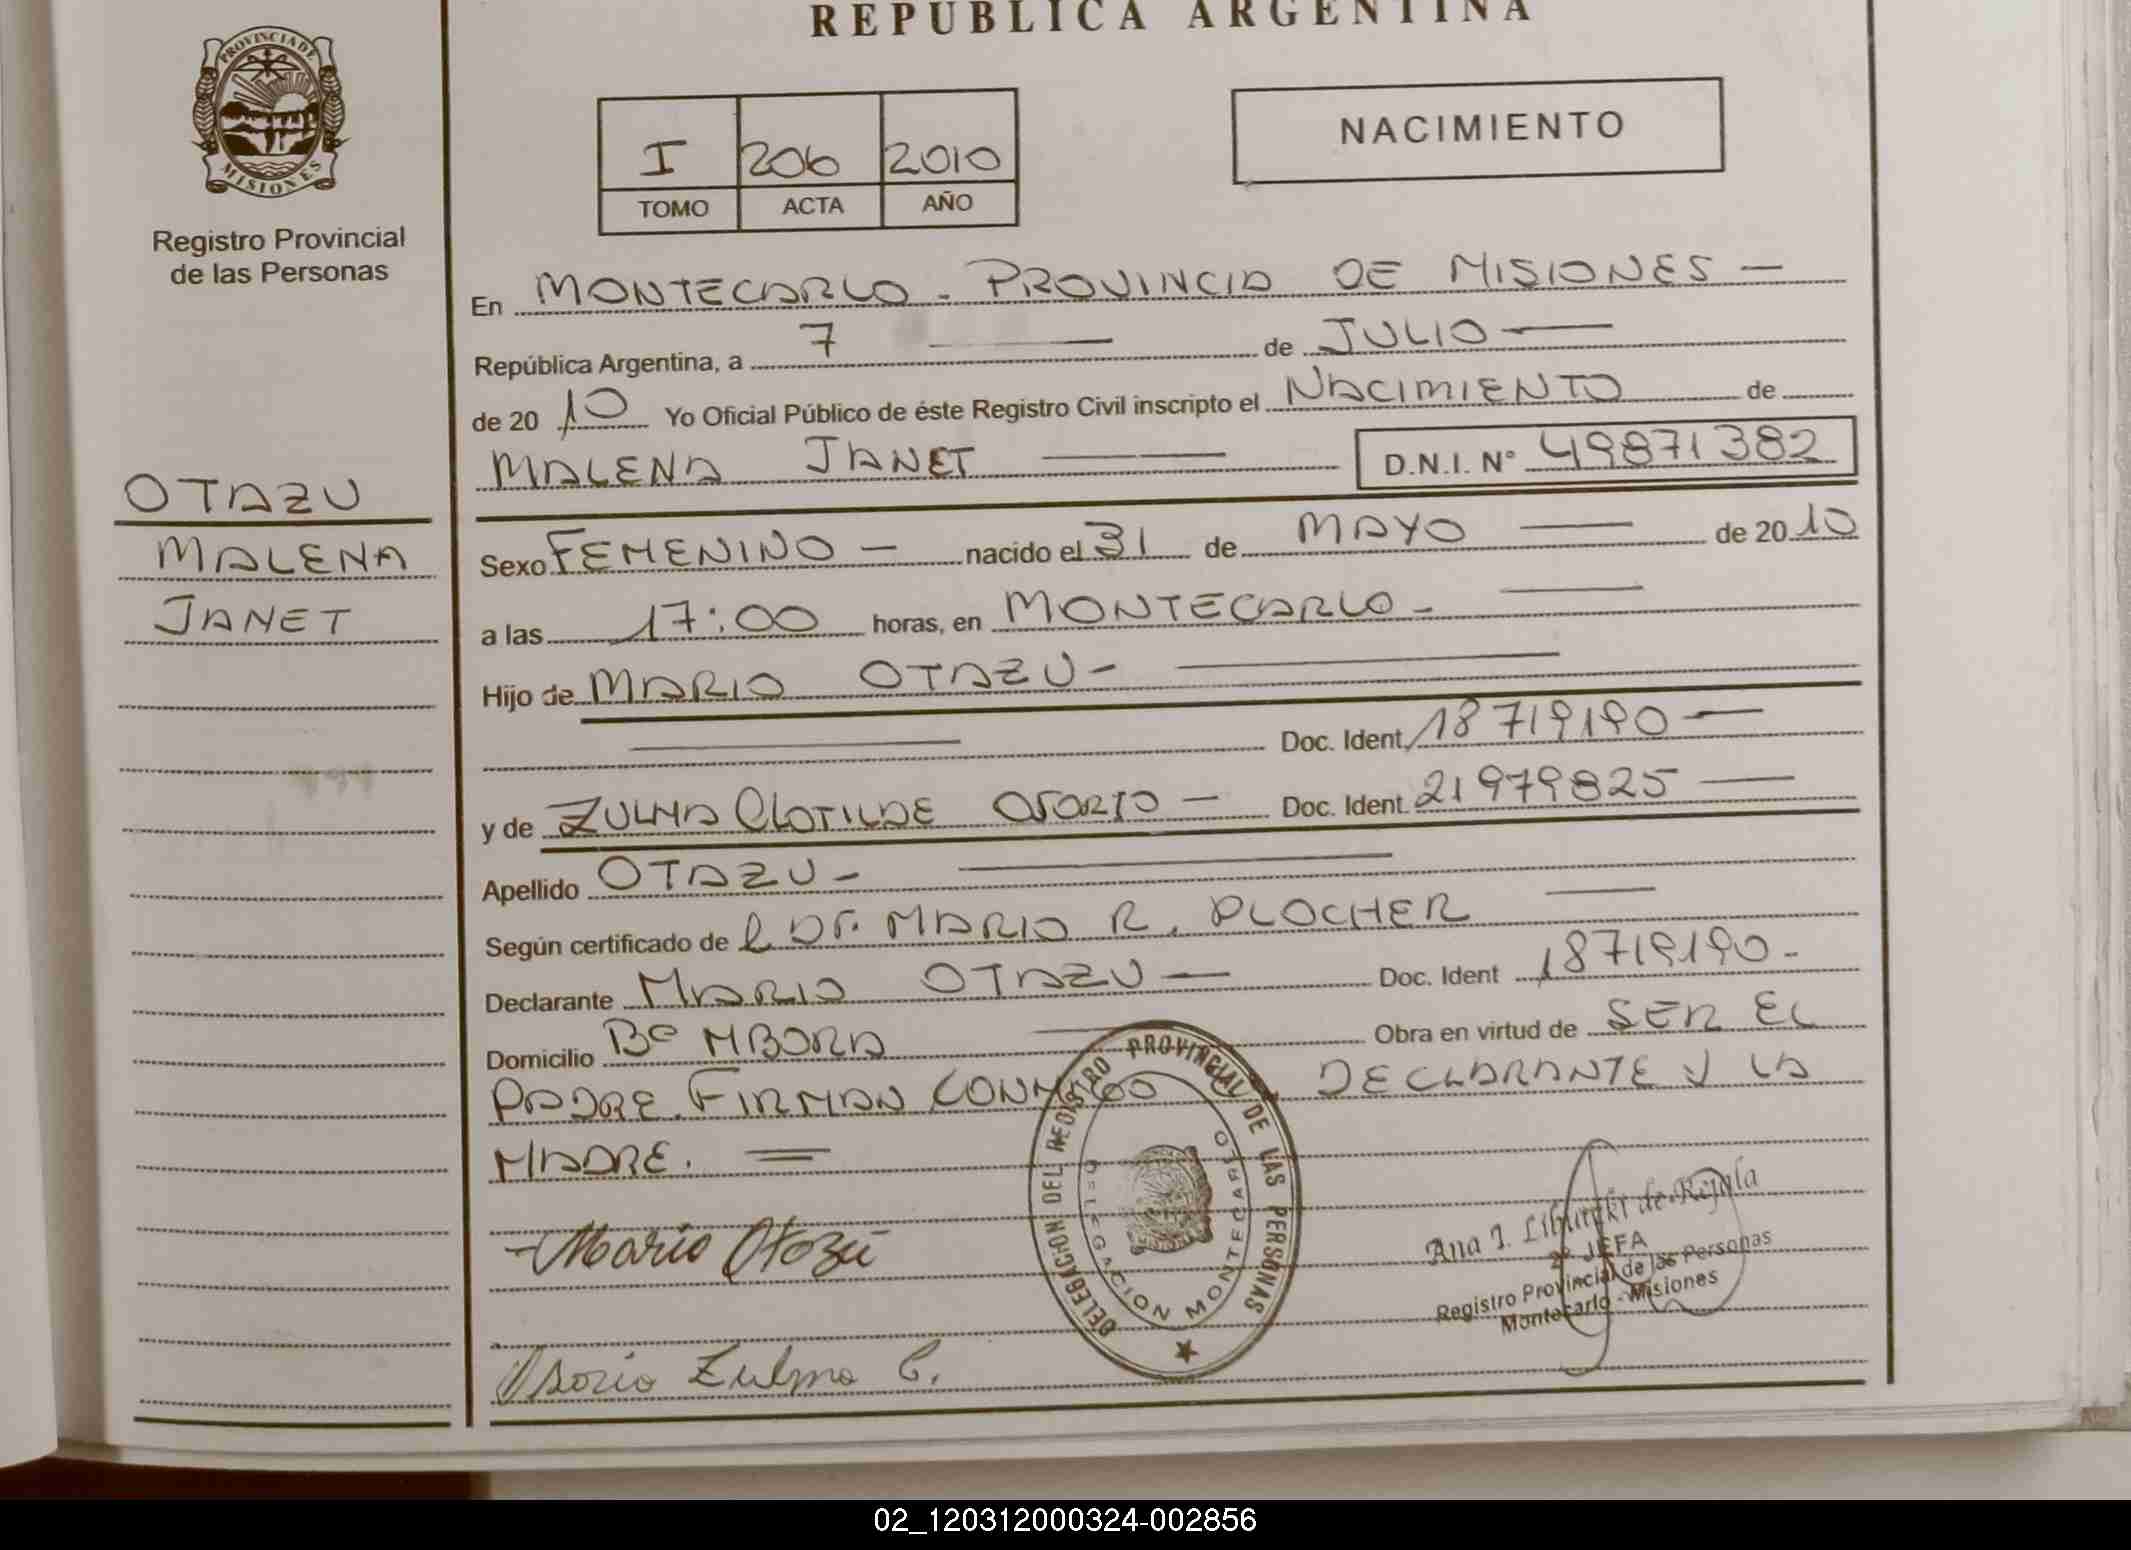 REPUBLICA ARGENTINA
PROVINCIA DE
MISIONES
Registro Provincial
de las Personas
I 206 2010
TOMO ACTA AÑO
NACIMIENTO
En MONTECARLO - PROVINCIA DE MISIONES —
República Argentina, a 7 — de JULIO —
de 20 10 Yo Oficial Público de éste Registro Civil inscripto el NACIMIENTO de
MALENA JANET — D.N.I. Nº 49871382
OTAZU
MALENA
JANET
Sexo FEMENINO — nacido el 31 de MAYO — de 20 10
a las 17:00 horas, en MONTECARLO - —
Hijo de MARIO OTAZU - —
— Doc. Ident. 18719190 —
y de ZULMA CLOTILDE OSORIO — Doc. Ident. 21979825 —
Apellido OTAZU - —
Según certificado de l Dr. MARIO R. PLOCHER —
Declarante MARIO OTAZU — Doc. Ident 18719190 -
Domicilio Bº MBORA — Obra en virtud de SER EL
PADRE. FIRMAN CONMIGO DECLARANTE Y LA
MADRE. =
- Mario Otazú
Osorio Zulma C.
DELEGACION DEL REGISTRO PROVINCIAL DE LAS PERSONAS
DELEGACION MONTECARLO
Ana I. de
2º JEFA
Registro Provincial de las Personas
Montecarlo - Misiones
02_120312000324-002856